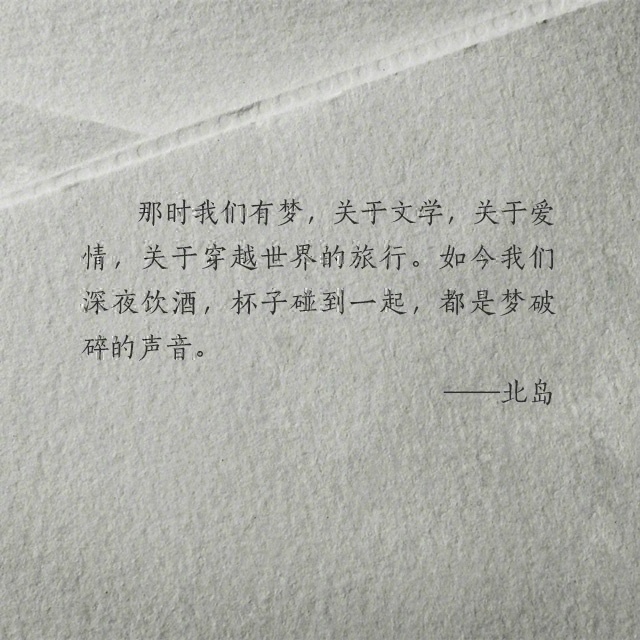 那时我们有梦，关于文学，关于爱
情，关于穿越世界的旅行。如今我们
深夜饮酒，杯子碰到一起，都是梦破
碎的声音。
——北岛